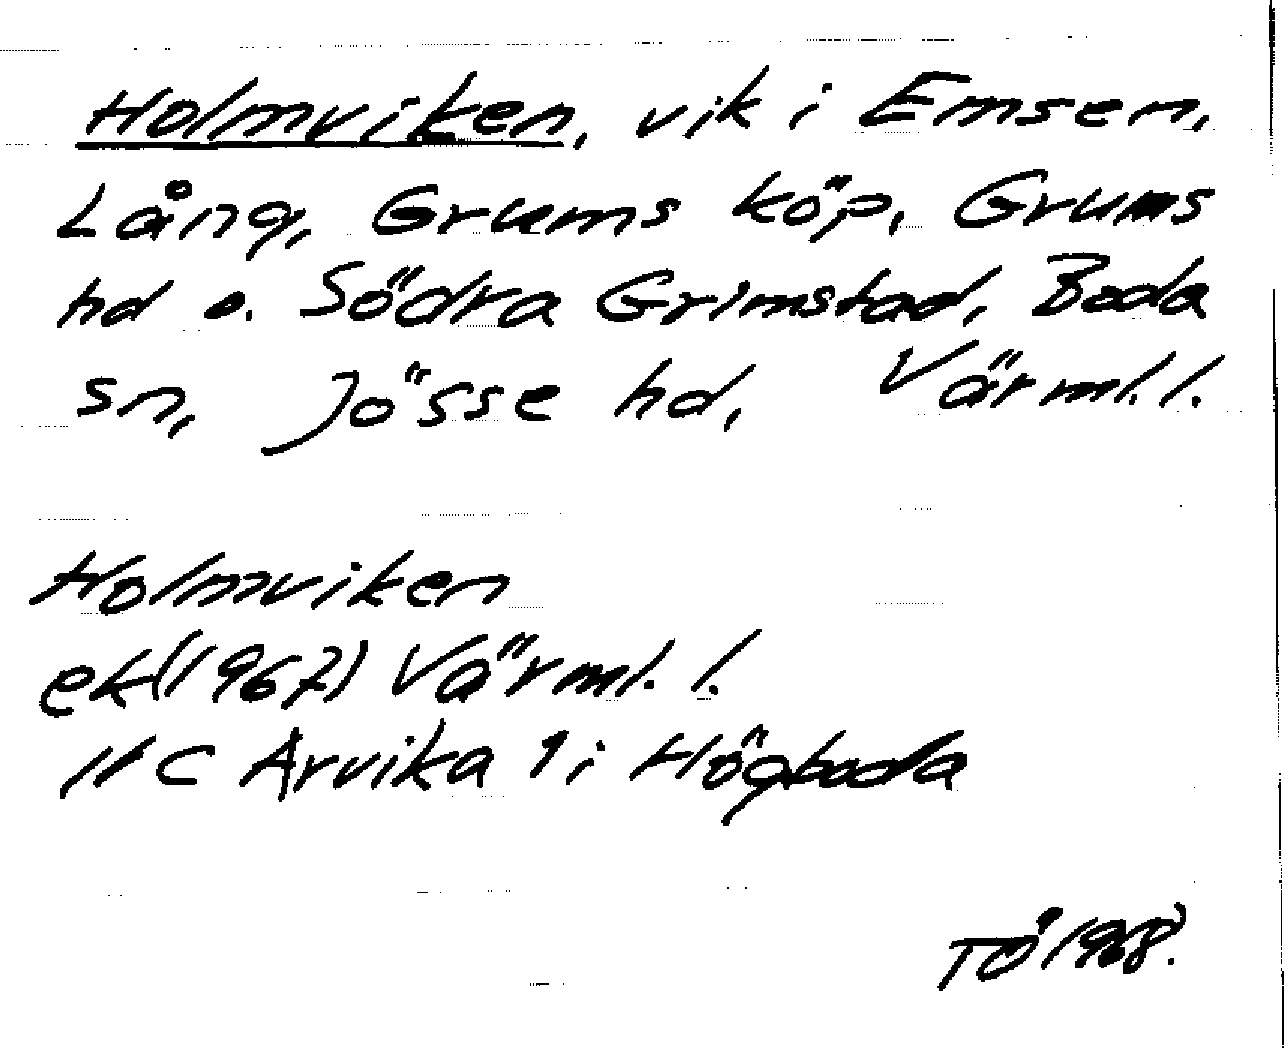 Holmviken, vik i Emsen,
Lång, Grums köp, Grums
hd o. Södra Grimstad, Boda
sn, Jösse hd, Värml. l.
Holmviken
ek(1967) Värml. l.
11 C Arvika 9 i Högboda
TÖ 1968.